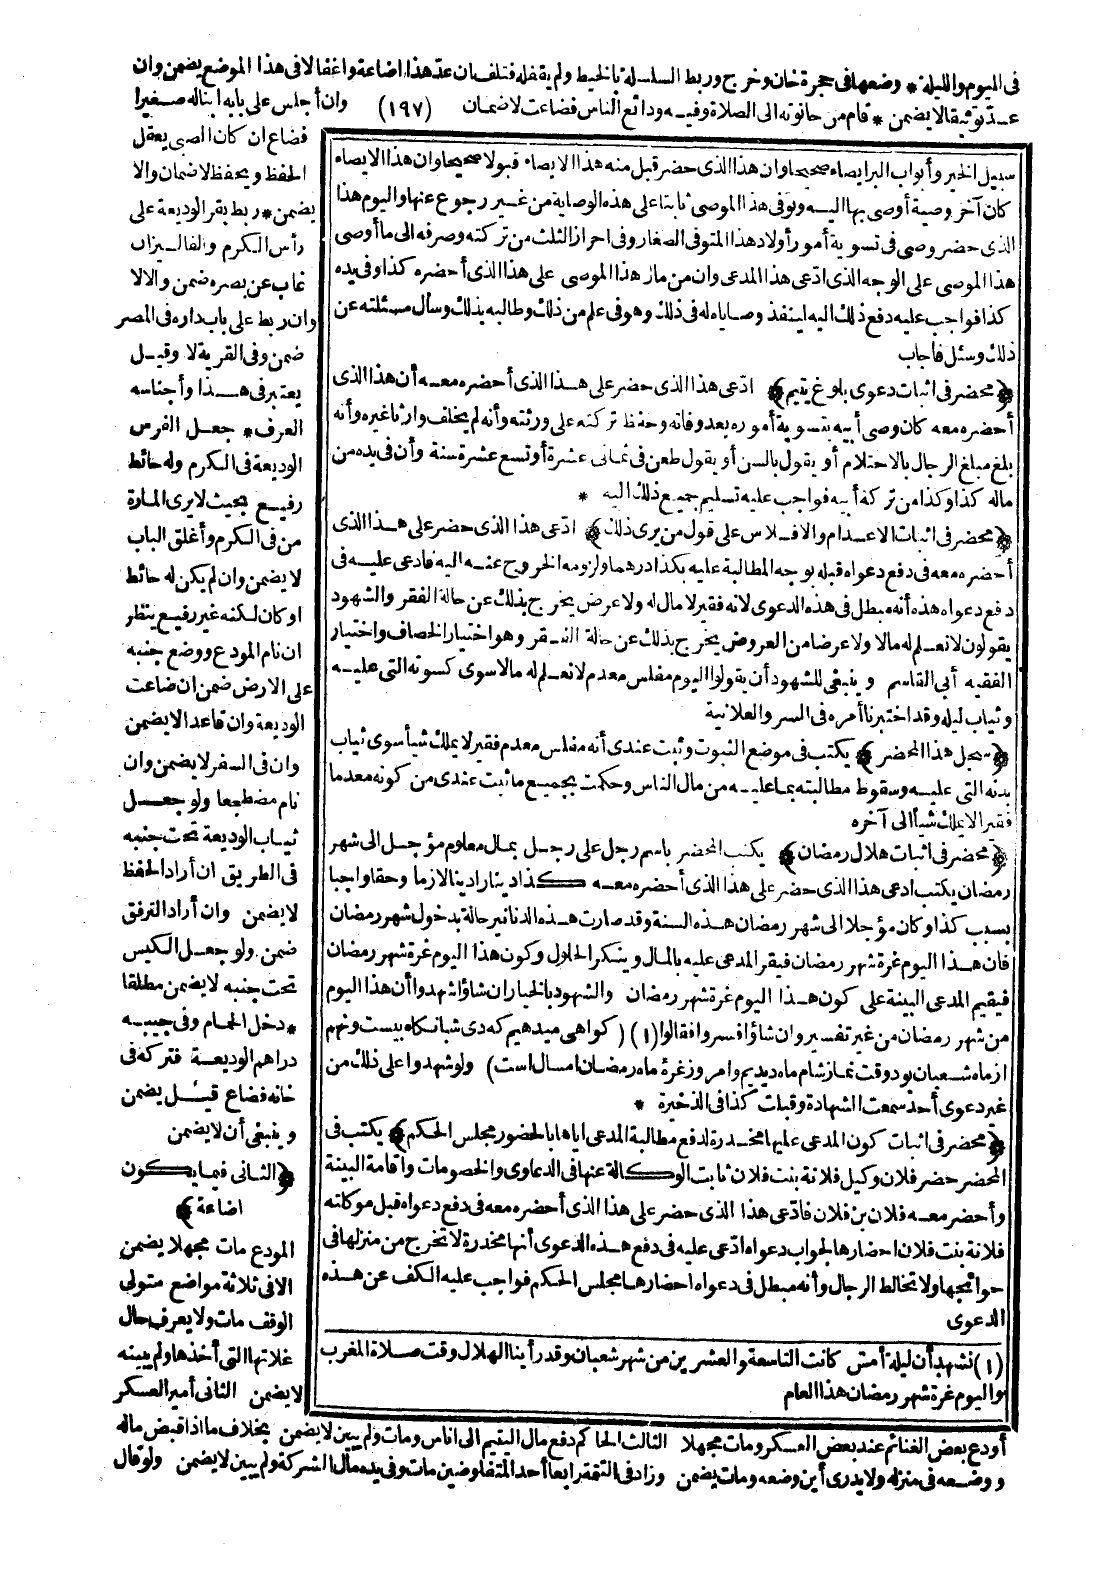 فى اليوم والليلة * وضعها فى حجرة خان وخرج وربط السلسلة بالخيط ولم يقفله فتلف ان عد هذا اضاعة واغفالا فى هذا الموضع يضمن وان
عد توثيقا لا يضمن * قام من حانوته الى الصلاة وفيه ودائع الناس فضاعت لا ضمان (١٩٧) وان أجلس على بابه ابنا له صغيرا
فضاع ان كان الصبى يعقل
الحفظ ويحفظ لا ضمان والا
يضمن * ربط بقر الوديعة على
رأس الكرم والفاليزان
غاب عن بصره ضمن والا لا
وان ربط على باب داره فى المصر
ضمن وفى القرية لا وقيل
يعتبر فى هذا وأجناسه
العرف * جعل الفرس
الوديعة فى الكرم وله حائط
رفيع بحيث لا يرى المارة
من فى الكرم وأغلق الباب
لا يضمن وان لم يكن له حائط
او كان لكنه غير رفيع ينظر
ان نام المودع ووضع جنبه
على الارض ضمن ان ضاعت
الوديعة وان قاعدا لا يضمن
وان فى السفر لا يضمن وان
نام مضطجعا ولو جعل
ثياب الوديعة تحت جنبه
فى الطريق ان أراد الحفظ
لا يضمن وان أراد الترفق
ضمن ولو جعل الكيس
تحت جنبه لا يضمن مطلقا
* دخل الحمام وفى جيبه
دراهم الوديعة فتركه فى
خانه فضاع قيل يضمن
وينبغى أن لا يضمن
﴿الثانى فيما يكون
اضاعة﴾
المودع مات مجهلا يضمن
الا فى ثلاثة مواضع متولى
الوقف مات ولا يعرف حال
غلاتها التى أخذها ولم يبينه
لا يضمن الثانى أمير العسكر
سبيل الخير وأبواب البر ايصاء صحيحا وان هذا الذى حضر قبل منه هذا الايصاء قبولا صحيحا وان هذا الايصاء
كان آخر وصية أوصى بها اليه وتوفى هذا الموصى ثابتا على هذه الوصاية من غير رجوع عنها واليوم هذا
الذى حضر وصى فى تسوية أمور أولاد هذا المتوفى الصغار وفى احراز الثلث من تركته وصرفه الى ما أوصى
هذا الموصى على الوجه الذى ادّعى هذا المدعى وان من مال هذا الموصى على هذا الذى أحضره كذا وفى يده
كذا فواجب عليه دفع ذلك اليه لينفذ وصاياه له فى ذلك وهو فى علم من ذلك وطالبه بذلك وسأل مسئلته عن
ذلك وسئل فأجاب
﴿محضر فى اثبات دعوى بلوغ يتيم﴾ ادّعى هذا الذى حضر على هذا الذى أحضره معه أن هذا الذى
أحضره معه كان وصى أبيه بتسوية أموره بعد وفاته وحفظ تركته على ورثته وأنه لم يخلف وارثا غيره وأنه
بلغ مبلغ الرجال بالاحتلام أو يقول بالسن أو يقول طعن فى ثمانى عشرة أو تسع عشرة سنة وأن فى يده من
ماله كذا وكذا من تركة أبيه فواجب عليه تسليم جميع ذلك اليه *
﴿محضر فى اثبات الاعدام والافلاس على قول من يرى ذلك﴾ ادّعى هذا الذى حضر على هذا الذى
أحضره معه فى دفع دعواه قبله بوجه المطالبة عليه بكذا درهما ولزومه الخروج عنه اليه فادعى عليه فى
دفع دعواه هذه أنه مبطل فى هذه الدعوى لانه فقير لا مال له ولا عرض يخرج بذلك عن حالة الفقر والشهود
يقولون لا نعلم له مالا ولا عرضا من العروض يخرج بذلك عن حالة الفقر وهو اختيار الخصاف واختيار
الفقيه أبى القاسم وينبغى للشهود أن يقولوا اليوم مفلس معدم لا نعلم له مالا سوى كسوته التى عليه
وثياب ليله وقد اختبرنا أمره فى السر والعلانية
﴿سجل هذا المحضر﴾ يكتب فى موضع الثبوت وثبت عندى أنه مفلس معدم فقير لا يملك شيأ سوى ثياب
بدنه التى عليه وسقوط مطالبته بما عليه من مال الناس وحكمت بجميع ما ثبت عندى من كونه معدما
فقيرا لا يملك شيأ الى آخره
﴿محضر فى اثبات هلال رمضان﴾ يكتب المحضر باسم رجل على رجل بمال معلوم مؤجل الى شهر
رمضان يكتب ادعى هذا الذى حضر على هذا الذى أحضره معه كذا دينارا دينا لازما وحقا واجبا
بسبب كذا وكان مؤجلا الى شهر رمضان هذه السنة وقد صارت هذه الدنانير حالة بدخول شهر رمضان
فان هذا اليوم غرة شهر رمضان فيقر المدعى عليه بالمال وينكر الحلول وكون هذا اليوم غرة شهر رمضان
فيقيم المدعى البينة على كون هذا اليوم غرة شهر رمضان والشهود بالخيار ان شاؤا شهدوا أن هذا اليوم
من شهر رمضان من غير تفسير وان شاؤا فسروا فقالوا (١) (كواهى ميدهيم كه دى شبانكاه بيست ونهم
از ماه شعبان بود وقت نماز شام ماه ديديم وامروز غرة ماه رمضان امسال است) ولو شهدوا على ذلك من
غير دعوى أحد سمعت الشهادة وقبلت كذا فى الذخيرة *
﴿محضر فى اثبات كون المدعى عليها مخدرة لدفع مطالبة المدعى اياها بالحضور مجلس الحكم﴾ يكتب فى
المحضر حضر فلان وكيل فلانة بنت فلان ثابت الوكالة عنها فى الدعاوى والخصومات واقامة البينة
وأحضر معه فلان بن فلان فادّعى هذا الذى حضر على هذا الذى أحضره معه فى دفع دعواه قبل موكلته
فلانة بنت فلان احضارها لجواب دعواه ادّعى عليه فى دفع هذه الدعوى أنها مخدرة لا تخرج من منزلها فى
حوائجها ولا تخالط الرجال وأنه مبطل فى دعواه احضارها مجلس الحكم فواجب عليه الكف عن هذه
الدعوى
(١) نشهد أن ليلة أمس كانت التاسعة والعشرين من شهر شعبان وقد رأينا الهلال وقت صلاة المغرب
واليوم غرة شهر رمضان هذا العام
أودع بعض الغنائم عند بعض العسكر ومات مجهلا الثالث الحاكم دفع مال اليتيم الى اناس ومات ولم يبين لا يضمن بخلاف ما اذا قبض ماله
ووضعه فى منزله ولا يدرى أين وضعه ومات يضمن وزاد فى التتمة رابعا أحد المتفاوضين مات وفى يده مال الشركة ولم يبين لا يضمن ولو قال